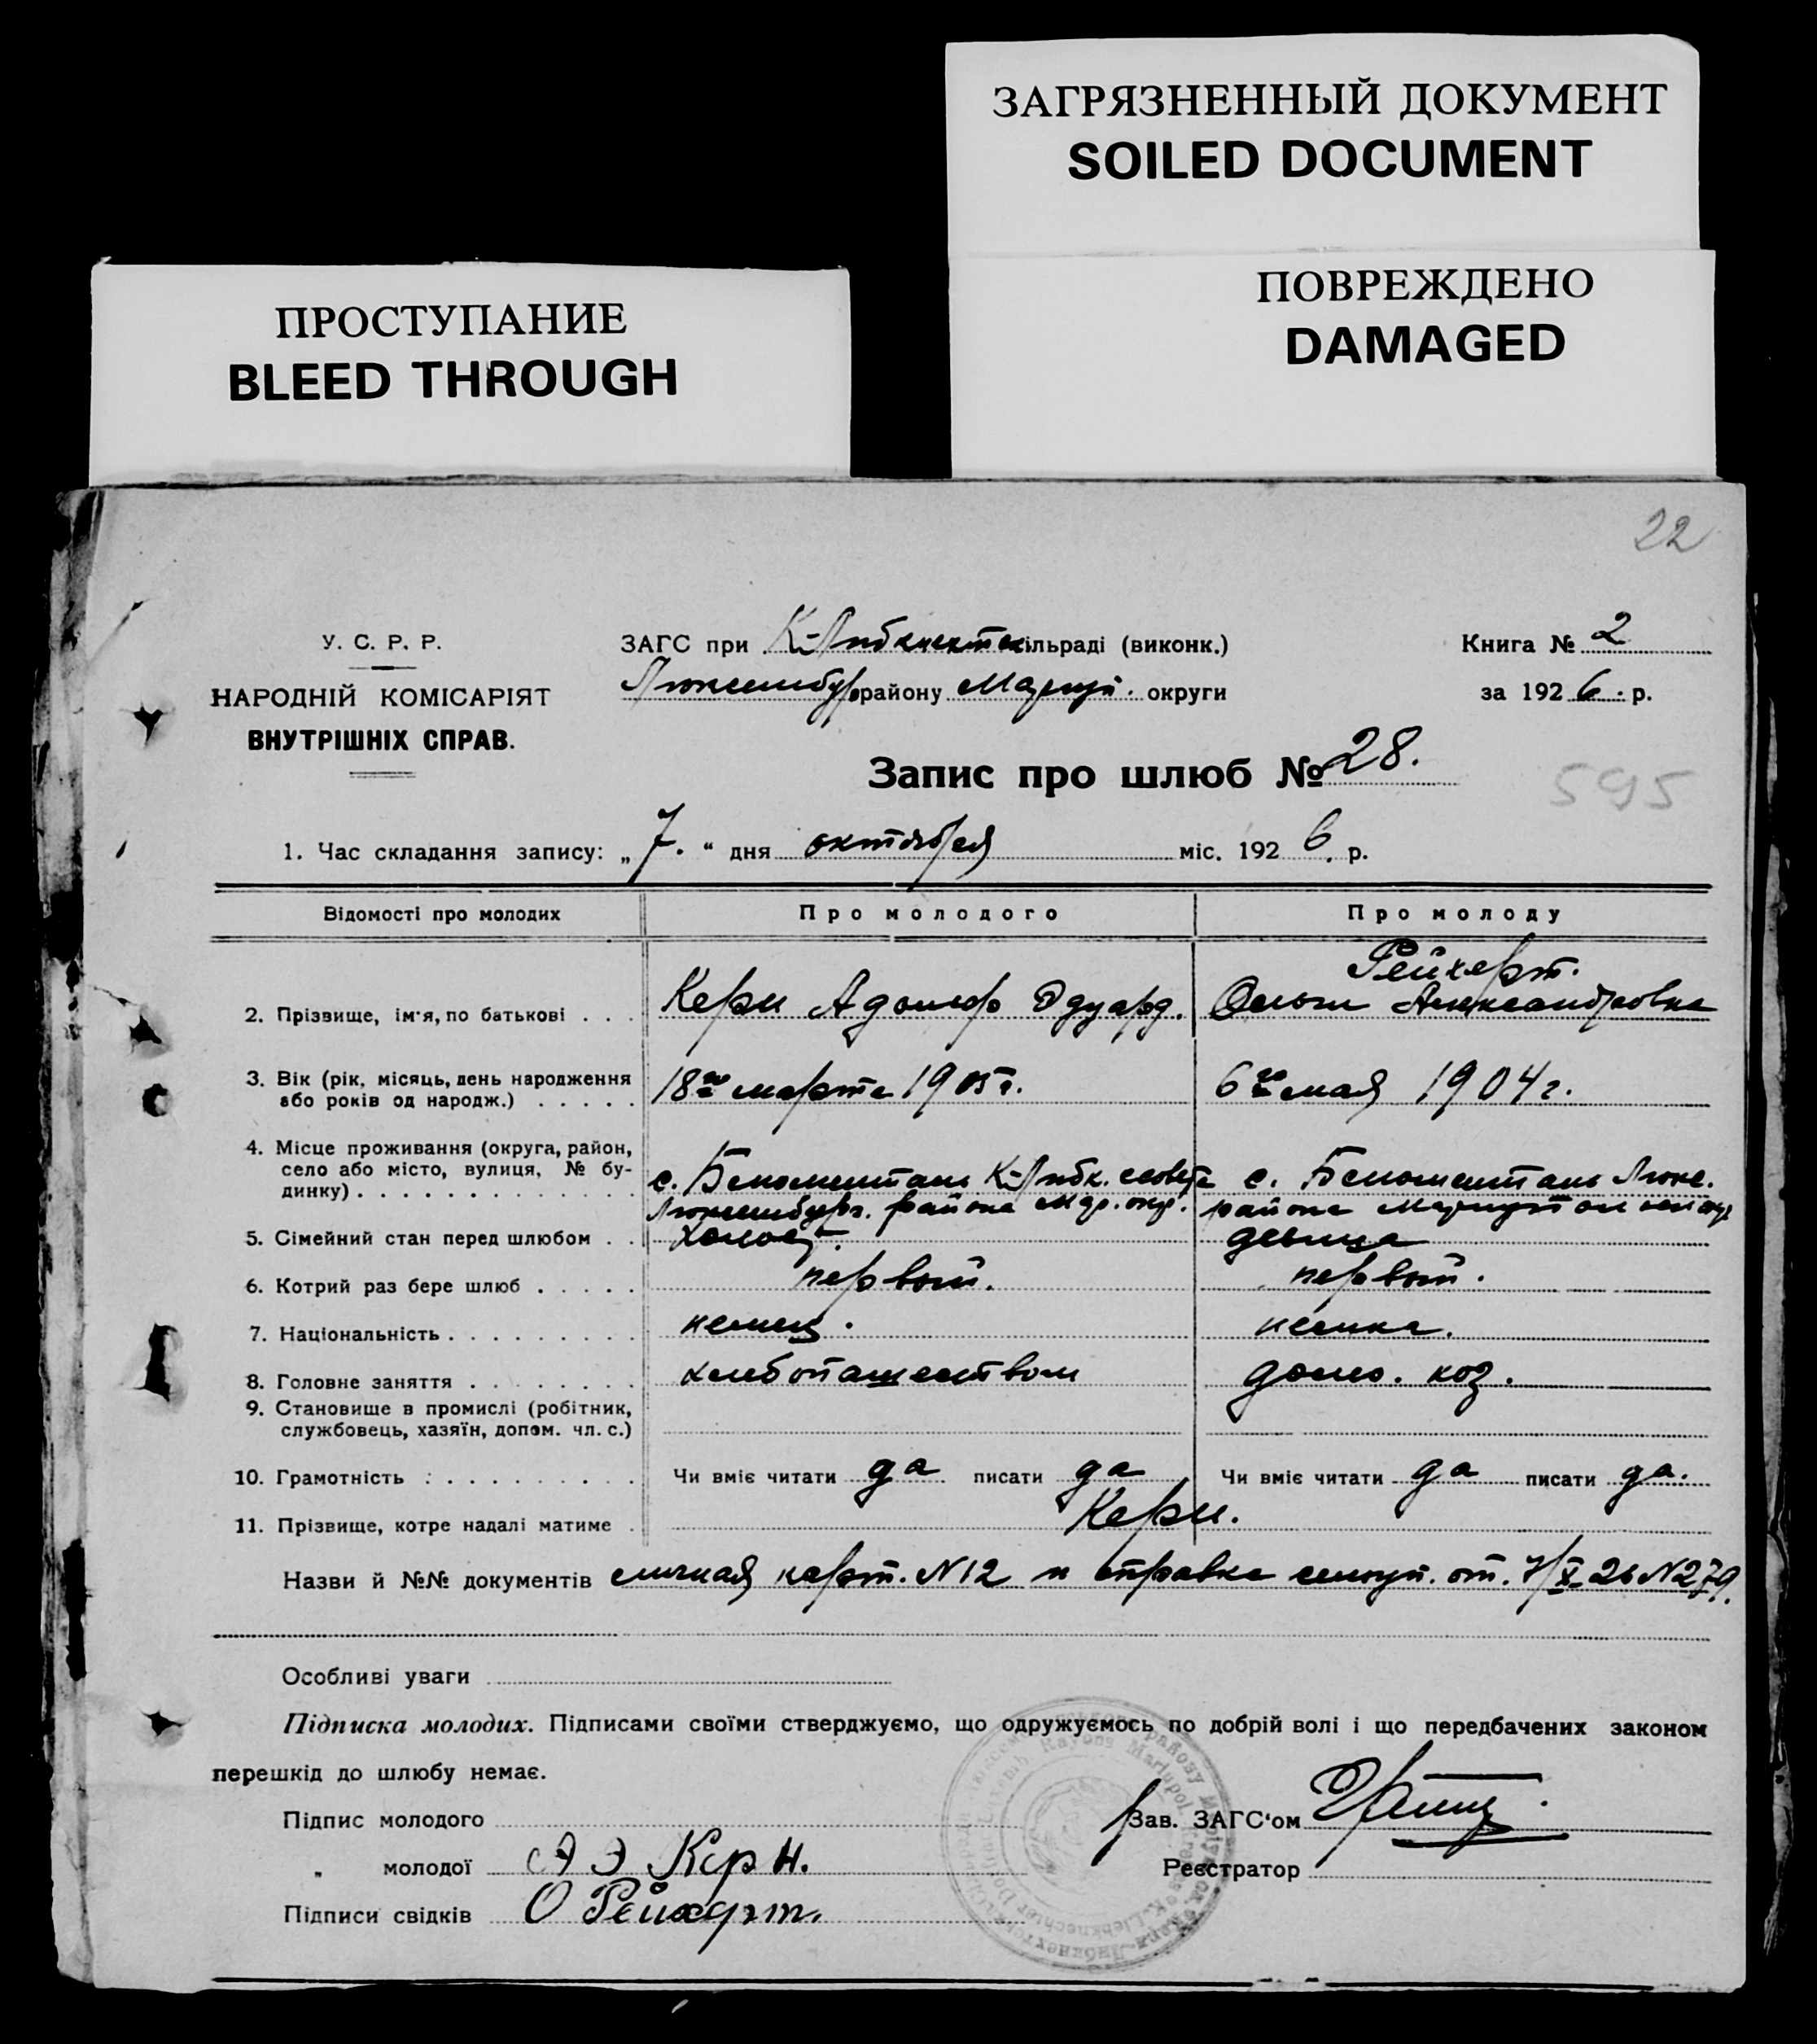 ЗАГРЯЗНЕННЫЙ ДОКУМЕНТ
SOILED DOCUMENT
ПОВРЕЖДЕНО
DAMAGED
ПРОСТУПАНИЕ
BLEED THROUGH
22
У. С. Р. Р.
НАРОДНІЙ КОМІСАРІЯТ
ВНУТРІШНІХ СПРАВ.
ЗАГС при К-Либкнехтск ільраді (виконк.)
Люксембур району Мариуп. округи
Книга № 2
за 1926. р.
Запис про шлюб № 28.
595
1. Час складання запису: „ 7. “ дня октября міс. 1926. р.
Відомості про молодих Про молодого Про молоду
2. Прізвище, ім'я, по батькові . . . Керн Адольф Эдуард. Рейхерт. Ольга Александровна
3. Вік (рік, місяць, день народження або років од народж.) . . . . . 18го марта 1905 г. 6го мая 1904 г.
4. Місце проживання (округа, район, село або місто, вулиця, № будинку) . . . с. Беломенталь К-Либк. совета
Люксембург. района Мар. окр.
с. Беломенталь Люкс.
района Мариупольск окр
5. Сімейний стан перед шлюбом . . холост. девица
6. Котрий раз бере шлюб . . . . . первый. первый.
7. Національність . . . . . . . . . немец. немка.
8. Головне заняття . . . . . . . . хлебопашеством домо. хоз.
9. Становище в промислі (робітник, службовець, хазяїн, допом. чл. с.)
10. Грамотність . . . . . . . . . . Чи вміє читати да писати да Чи вміє читати да писати да.
11. Прізвище, котре надалі матиме . Керн.
Назви й №№ документів личная карт. N12 и справка от. 7/X-26 N279.
Особливі уваги
Підписка молодих. Підписами своїми стверджуємо, що одружуємось по добрій волі і що передбачених законом
перешкід до шлюбу немає.
Підпис молодого
„ молодої А Э Керн.
Підписи свідків О Рейхерт.
Зав. ЗАГС'ом
Реєстратор